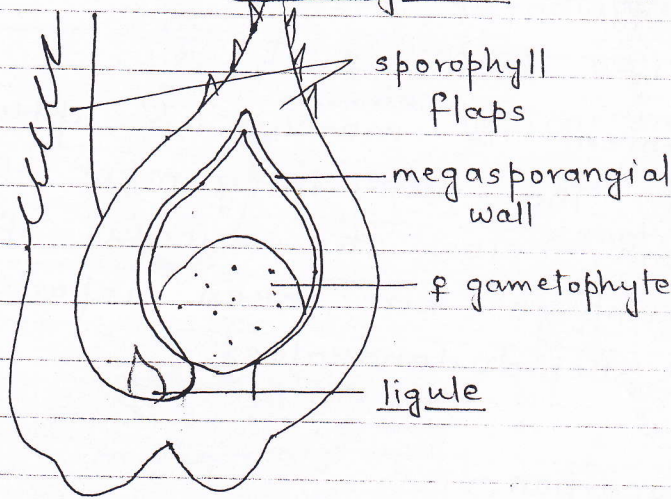 sporophyll
flaps
megasporangial
wall
♀ gametophyte
ligule